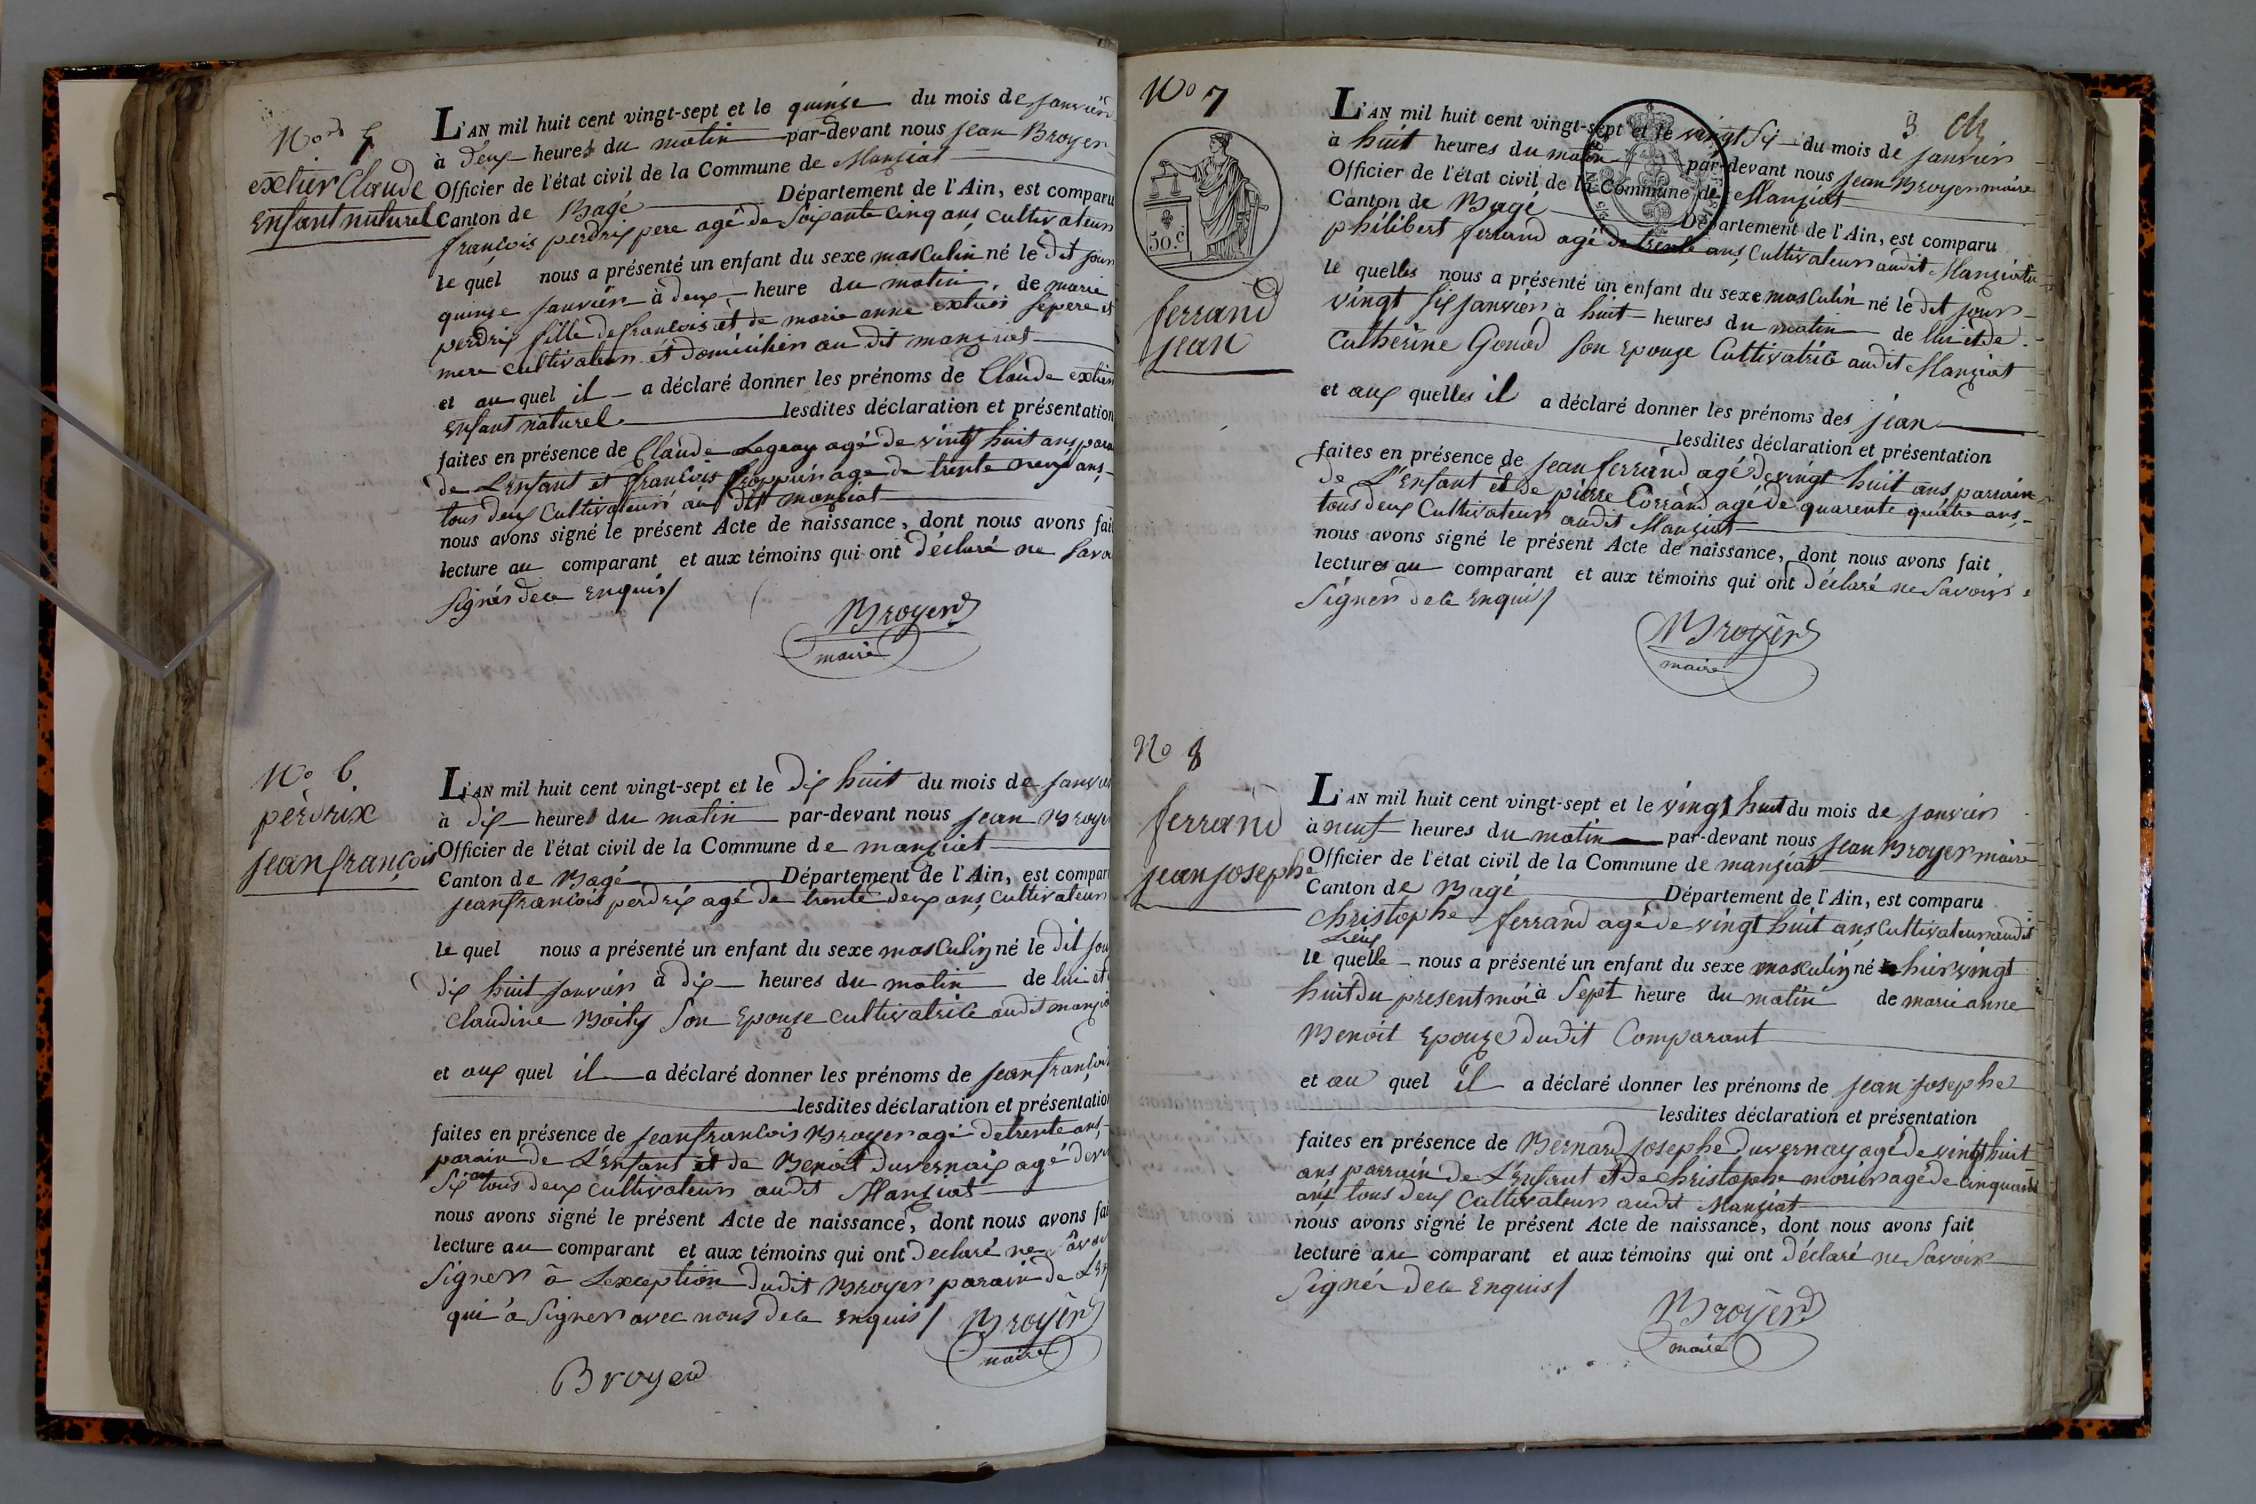 No 5
extier Claude
enfant naturel
L'AN mil huit cent vingt-sept et le quinze du mois de janvier
à deux heures du matin par-devant nous jean Broyer
Officier de l'état civil de la Commune de Manziat
Canton de Bagé Département de l'Ain, est comparu
françois perdrix pere agé de soixante cinq ans, cultivateur
le quel nous a présenté un enfant du sexe masculin né le dit jour
quinze janvier à deux heure du matin, de marie
perdrix fille de françois et de marie anne extier se pere et
mere cultivateur et domicilier au dit manziat
et au quel il a déclaré donner les prénoms de Claude extier
enfant naturel lesdites déclaration et présentation
faites en présence de Claude Legeay agé de vingt huit ans, para
de L'enfant et françois agé de trente neuf ans,
tous deux cultivateur au dit manziat
nous avons signé le présent Acte de naissance, dont nous avons fai
lecture au comparant et aux témoins qui ont déclaré ne savo
signér de ce enquis/
Broyer
maire
No 6
perdrix
jean françois
L'AN mil huit cent vingt-sept et le dix huit du mois de janvie
à dix heures du matin par-devant nous jean Broye
Officier de l'état civil de la Commune de manziat
Canton de Bagé Département de l'Ain, est compar
jean françois perdrix agé de trente deux ans, cultivateur
le quel nous a présenté un enfant du sexe masculin né le dit jou
dix huit janvier à dix heures du matin de lui et
claudine Boity son epouze cultivatrice audit manzia
et aux quel il a déclaré donner les prénoms de jean françoi
lesdites déclaration et présentatio
faites en présence de jean françois Broyer agé de trente ans,
parain de L'enfant et de Benoit duvernais agé de
six ans tous deux cultivateur audit Manziat
nous avons signé le présent Acte de naissance, dont nous avons fai
lecture au comparant et aux témoins qui ont declaré ne savoi
signer à L'exception dudit Broyer parain de L'en
qui à signer avec nous de ce enquis/ Broyer
maire
Broyer
3
No 7
50.c
ferrand
jean
L'AN mil huit cent vingt-sept et le vingt six du mois de janvier
à huit heures du matin par-devant nous jean Broyer maire
Officier de l'état civil de la Commune de Manziat
Canton de Bagé Département de l'Ain, est comparu
philibert ferrand agé de trente ans, cultivateur audit Manziat
le quelles nous a présenté un enfant du sexe masculin né le dit jour
vingt six janvier à huit heures du matin de lui et de
Catherine Gonod son epouze Cultivatrice audit Manziat
et aux quelles il a déclaré donner les prénoms des jean
lesdites déclaration et présentation
faites en présence de jean ferrand agé de vingt huit ans parrain
de L'enfant et de pierre Corrand agé de quarente quatre ans,
tous deux Cultivateur audit Manziat
nous avons signé le présent Acte de naissance, dont nous avons fait
lectures au comparant et aux témoins qui ont déclaré ne savoir
signer de ce enquis/
Broyer
maire
No 8
ferrand
jean josephe
L'AN mil huit cent vingt-sept et le vingt huit du mois de janvier
à neuf heures du matin par-devant nous jean Broyer maire
Officier de l'état civil de la Commune de manziat
Canton de Bagé Département de l'Ain, est comparu
christophe ferrand agé de vingt huit ans, cultivateur audit
Lieux
le quelle nous a présenté un enfant du sexe masculin né hier vingt
huit du present moi à sept heure du matin de marie anne
Benoit epouze dudit Comparant
et au quel il a déclaré donner les prénoms de jean josephe
lesdites déclaration et présentation
faites en présence de Bernard josephe duvernay agé de vingt huit
ans parrain de L'enfant et de christophe morier agé de cinquante
ans, tous deux Cultivateur audit Manziat
nous avons signé le présent Acte de naissance, dont nous avons fait
lecture au comparant et aux témoins qui ont déclaré ne savoir
signér de ce enquis/
Broyer
maire